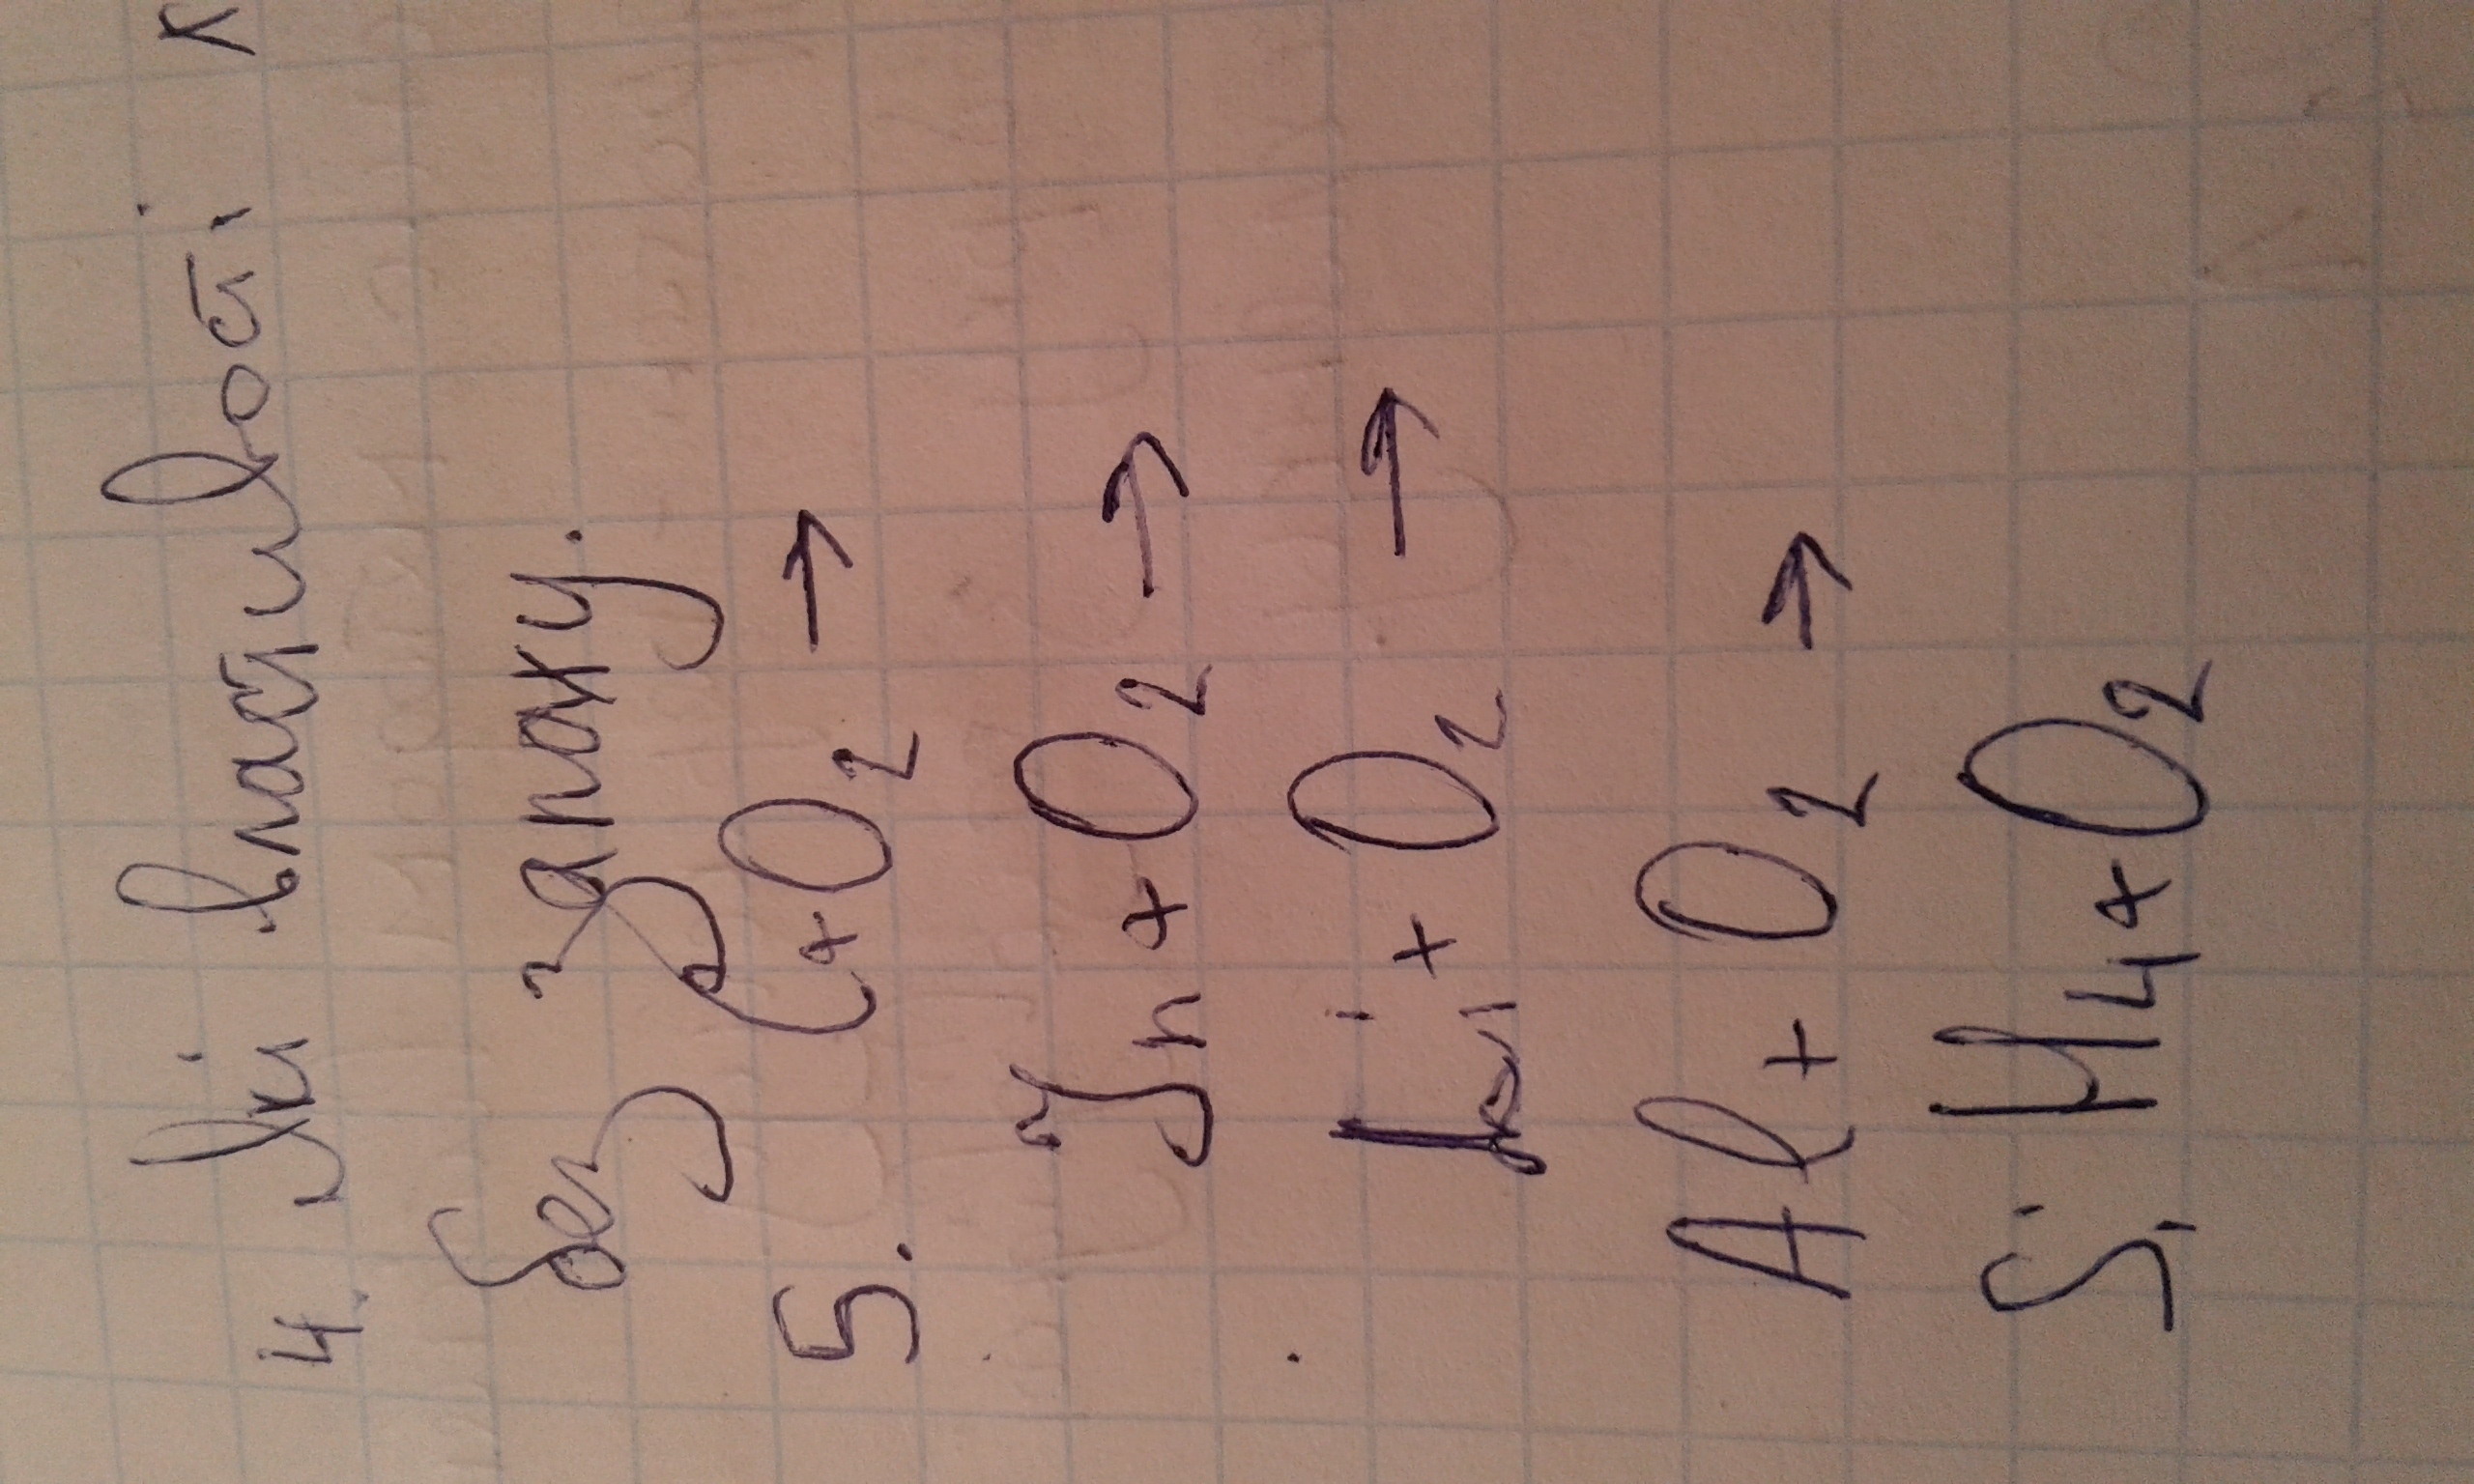 4. Які властивості
без запаху.
5. C + O2 →
Zn + O2 →
Li + O2 →
Al + O2 →
SiH4 + O2